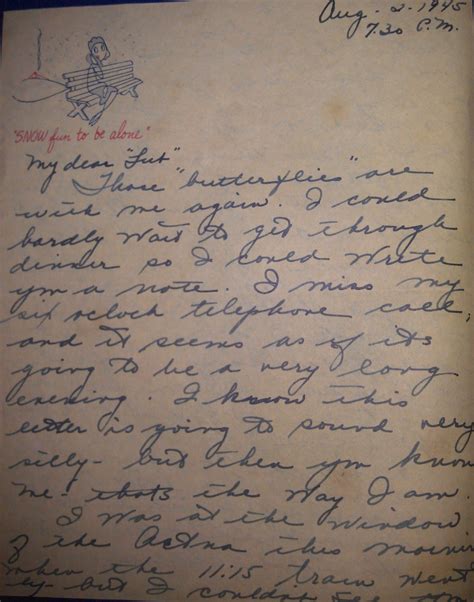 Aug. 2. 1945
7.30 P.M.
"SNOW fun to be alone"
My dear "Lut"
Those "butterflies" are
with me again. I could
hardly wait to get through
dinner so I could write
you a note. I miss my
six oclock telephone call,
and it seems as if its
going to be a very long
evening. I know this
letter is going to sound very
silly - but then you know
me - thats the way I am.
I was at the window
of the Aetna this morning
when the 11:15 train went
by - but I couldnt see you